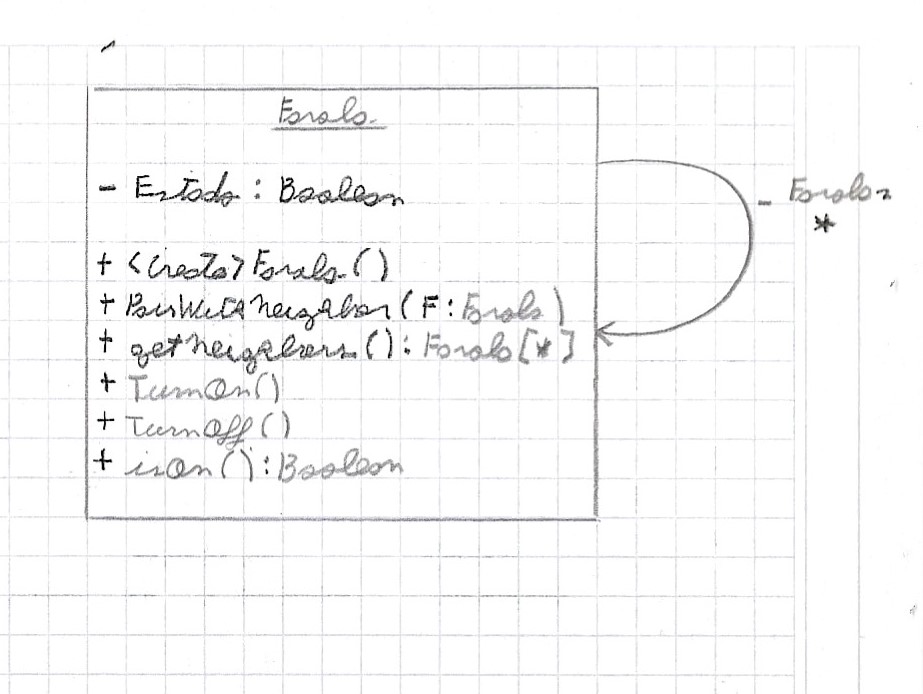 Farolo
- Estado : Boolean
+ <create> Farolo ()
+ PairWithNeighbor ( F : Farolo )
+ getNeighbors () : Farolo [*]
+ TurnOn ()
+ TurnOff ()
+ isOn () : Boolean
- Farolos
*